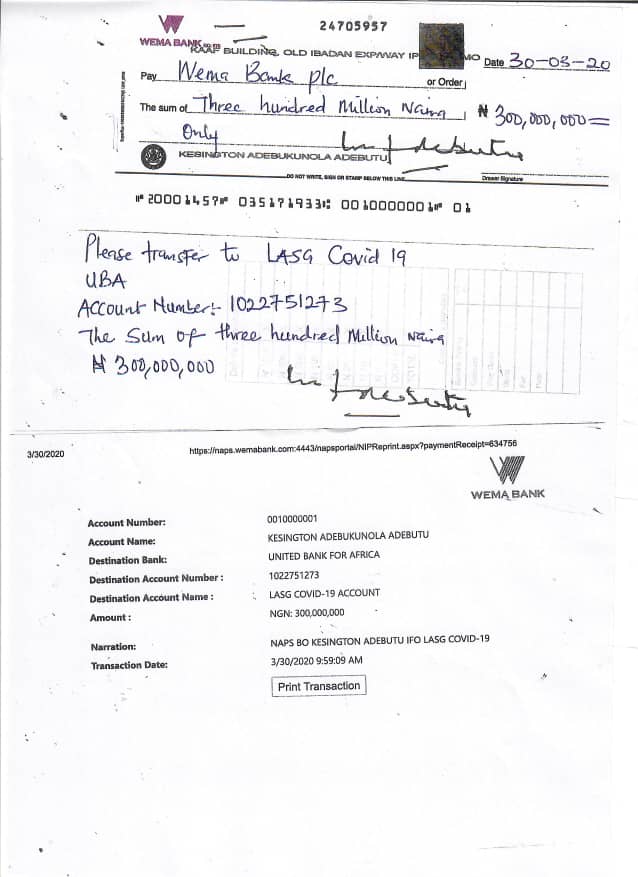 24705957
WEMA BANK
KAAF BUILDING, OLD IBADAN EXP/WAY IP MO Date 30-03-20
Pay Wema Bank plc or Order
The sum of Three hundred Million Naira ₦ 300,000,000=
Only
KESINGTON ADEBUKUNOLA ADEBUTU
DO NOT WRITE, SIGN OR STAMP BELOW THIS LINE Drawer Signature
⑈20001457⑈ 035171933⑆ 0010000001⑈ 01
Please transfer to LASG Covid 19
UBA
Account Number:- 1022751273
The Sum of three hundred Million Naira
₦ 300,000,000
3/30/2020 https://naps.wemabank.com:4443/napsportal/NIPReprint.aspx?paymentReceipt=634756
WEMA BANK
Account Number: 0010000001
Account Name: KESINGTON ADEBUKUNOLA ADEBUTU
Destination Bank: UNITED BANK FOR AFRICA
Destination Account Number : 1022751273
Destination Account Name : LASG COVID-19 ACCOUNT
Amount : NGN: 300,000,000
Narration: NAPS BO KESINGTON ADEBUTU IFO LASG COVID-19
Transaction Date: 3/30/2020 9:59:09 AM
Print Transaction